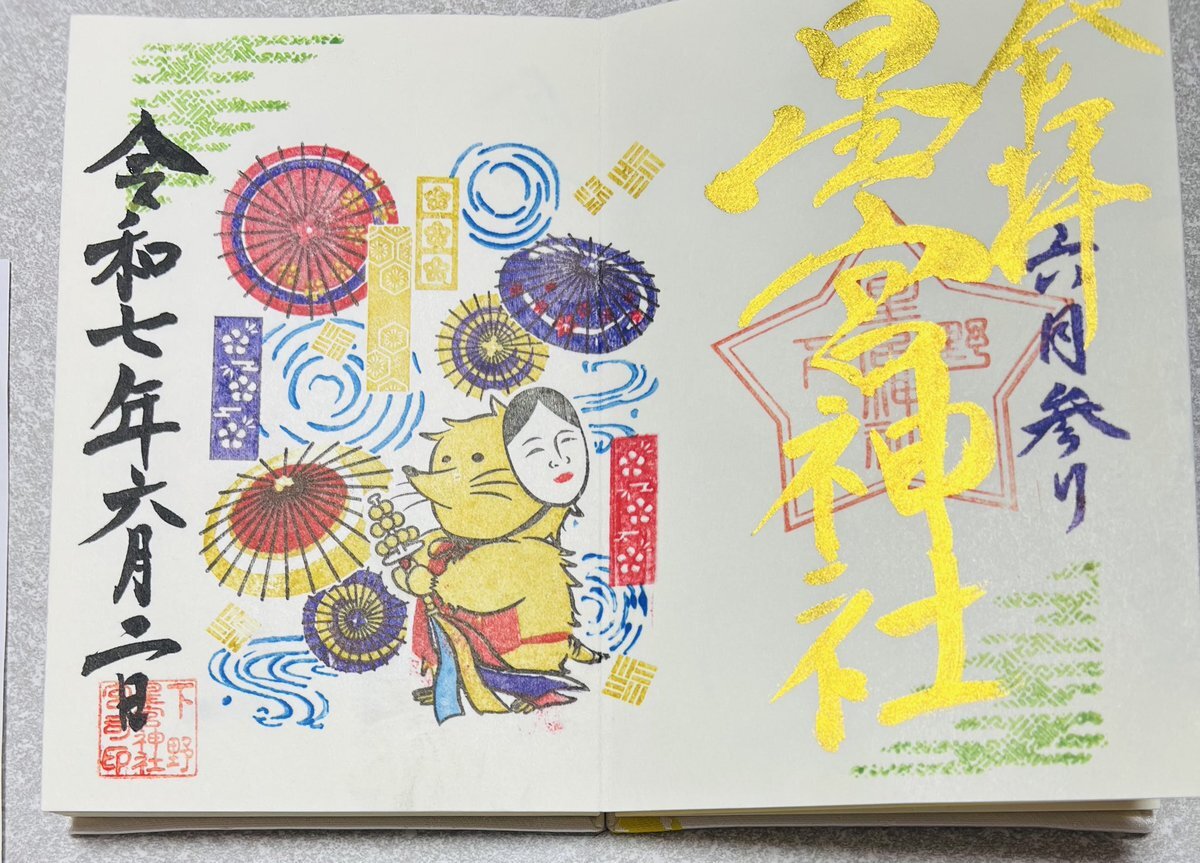 奉拝
六月参り
星宮神社
下野
星宮神社
令和七年六月二日
下野
星宮神社
宮司印